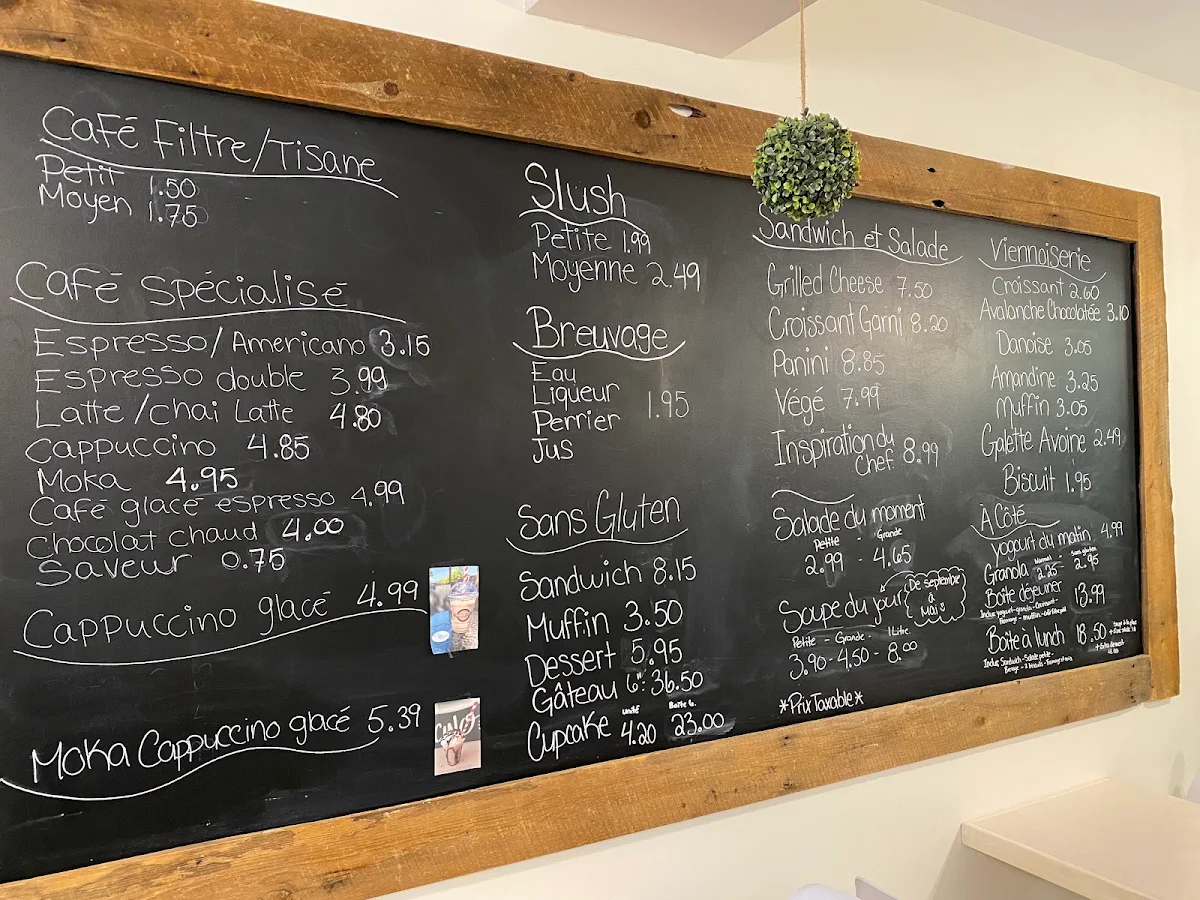 Café Filtre/Tisane
Petit 1.50
Moyen 1.75
Café spécialisé
Espresso/Americano 3.15
Espresso double 3.99
Latte/chai Latte 4.80
Cappuccino 4.85
Moka 4.95
Café glacé espresso 4.99
Chocolat chaud 4.00
Saveur 0.75
Cappuccino glacé 4.99
Moka Cappuccino glacé 5.39
Slush
Petite 1.99
Moyenne 2.49
Breuvage
Eau
Liqueur
Perrier 1.95
Jus
Sans Gluten
Sandwich 8.15
Muffin 3.50
Dessert 5.95
Gâteau 6": 36.50
unité Boîte 6.
Cupcake 4.20 23.00
Sandwich et Salade
Grilled Cheese 7.50
Croissant Garni 8.20
Panini 8.85
Végé 7.99
Inspiration du
Chef 8.99
Salade du moment
Petite - Grande
2.99 - 4.65
Soupe du jour
De septembre
à
Mai
Petite - Grande - 1 Litre
3.90 - 4.50 - 8.00
*Prix Taxable*
Viennoiserie
Croissant 2.60
Avalanche Chocolatée 3.10
Danoise 3.05
Amandine 3.25
Muffin 3.05
Galette Avoine 2.49
Biscuit 1.95
À Côté
yogourt du matin 4.99
Normal Sans gluten
Granola 2.25 - 2.95
Boite déjeuner 13.99
Boite à lunch 18.50